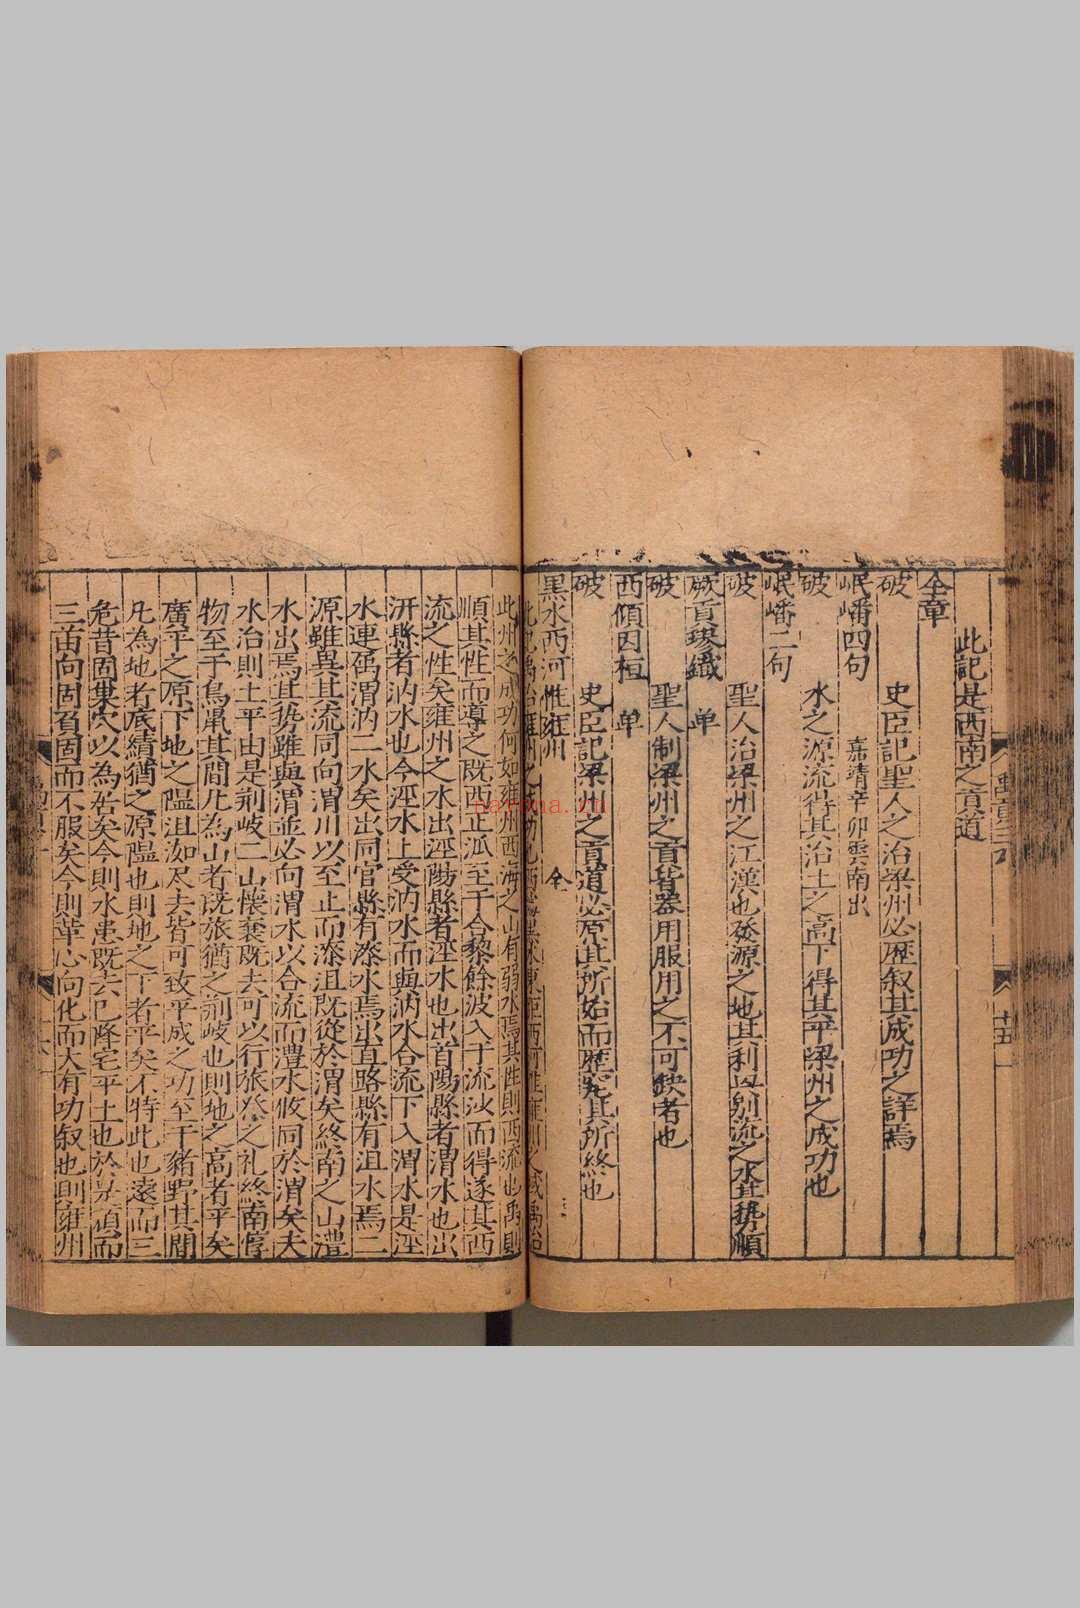 禹貢
十五
此記是西南之貢道
全章
破 史臣記聖人之治梁州必歷叙其成功之詳焉
岷嶓四句 嘉靖辛卯雲南出
破 水之源流得其治土之高下得其平梁州之成功也
岷嶓二句
破 聖人治梁州之江漢也發源之地其利與别流之水其势順
厥貢璆鐵 单
破 聖人制梁州之貢皆器用服用之不可缺者也
西傾因桓 单
破 史臣記梁州之貢道必原其所始而歷究其所終也
黑水西河惟雍州 全
此州之成功何如雍州西海之山有弱水焉其性則西流也禹則
順其性而導之既西正派至于合黎餘波入于流沙而得遂其西
流之性矣雍州之水出涇陽縣者涇水也出首陽縣者渭水也出
汧縣者汭水也今涇水上受汭水而與汭水合流下入渭水是涇
水連屬渭汭二水矣出同官縣有漆水焉出直路縣有沮水焉二
源雖異其流同向渭川以至止而漆沮既從於渭矣終南之山灃
水出焉其势雖與渭並必向渭水以合流而灃水攸同於渭矣夫
水治則土平由是荆岐二山懷襄既去可以行旅祭之礼終南惇
物至于鳥鼠其間凡為山者既旅猶之荆岐也則地之高者平矣
廣平之原下地之隰沮洳尽去皆可致平成之功至于豬野其間
凡為地者底績猶之原隰也則地之下者平矣不特此也遠而三
危昔固巢穴以為居矣今則水患既去已降宅平土也於是頑而
三苗向固負固而不服矣今則革心向化而大有功叙也則雍州
nayona.cn